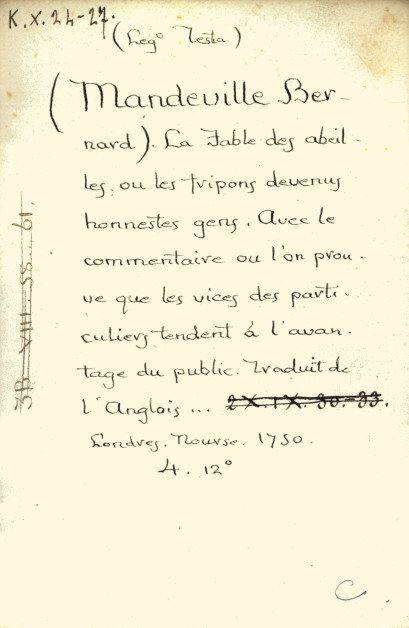 K.X.24-27.
(Leg° Testa)
(Mandeville Ber-
nard). La Fable des abeil-
les, ou les fripons devenus
honnestes gens. Avec le
commentaire ou l'on prou-
ve que les vices des parti-
culiers tendent à l'avan-
tage du public. Traduit de
l'Anglois... 2X.IX.30.-33.
Londres. Nourse. 1750.
4. 12°
3B-VIII-58...61.
C